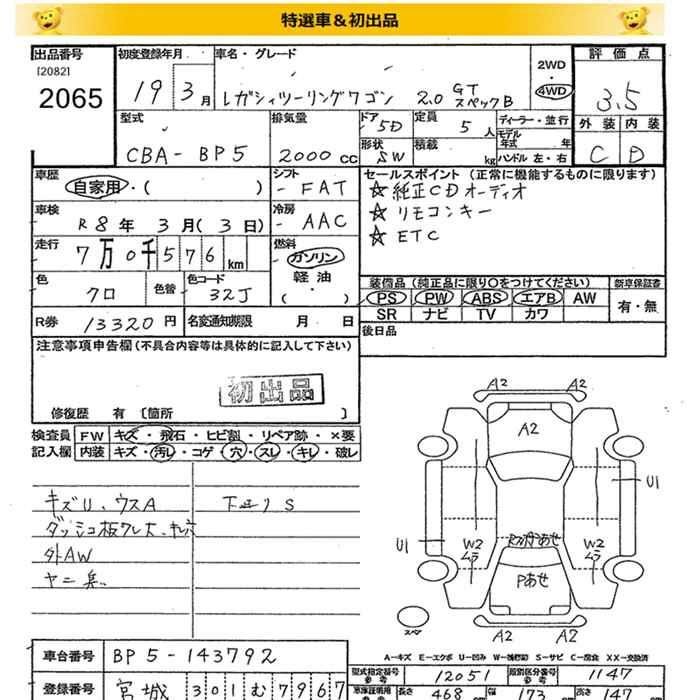 特選車＆初出品
出品番号
[2082]
2065
初度登録年月
19 3月
車名・グレード
レガシィツーリングワゴン 2.0 GT スペックB
2WD
4WD
評価点
3.5
外装 内装
C D
型式
CBA-BP5
排気量
2000 cc
ドア
5D
定員
5人
形状
SW
積載
kg
ディーラー・並行
モデル年式 年
ハンドル 左・右
車歴
自家用・( )
シフト
- FAT
車検
R8年 3月(3日)
冷房
- AAC
走行
7万0千576km
燃料
ガソリン
軽油
( ・ )
色
クロ
色替
色コード
32J
R券 13320円
名変通知期限 月 日
セールスポイント(正常に機能するものに限ります)
☆純正CDオーディオ
☆リモコンキー
☆ETC
装備品(純正品に限り○をつけてください)
新車保証書
PS PW ABS エアB AW
有・無
SR ナビ TV カワ
後日品
注意事項申告欄(不具合内容等は具体的に記入して下さい)
初出品
修復歴 有 〔箇所 〕
検査員記入欄
FW キズ・飛石・ヒビ割・リペア跡・×要
内装 キズ・汚レ・コゲ・穴・スレ・キレ・破レ
キズU、ウスA
下廻りS
外AW
A2 A2
A2
U1
U1
W2 ムラ
W2 ムラ
Pあせ
スペア
A－キズ E－エクボ U－凹み W－補修跡 S－サビ C－腐食 XX－交換済
車台番号 BP5-143792
型式指定番号 参考 12051
類別区分番号 参考 1147
登録番号 宮城 301 む 7967
車庫証明用 参考
長さ 468 cm
幅 173 cm
高さ 147 cm